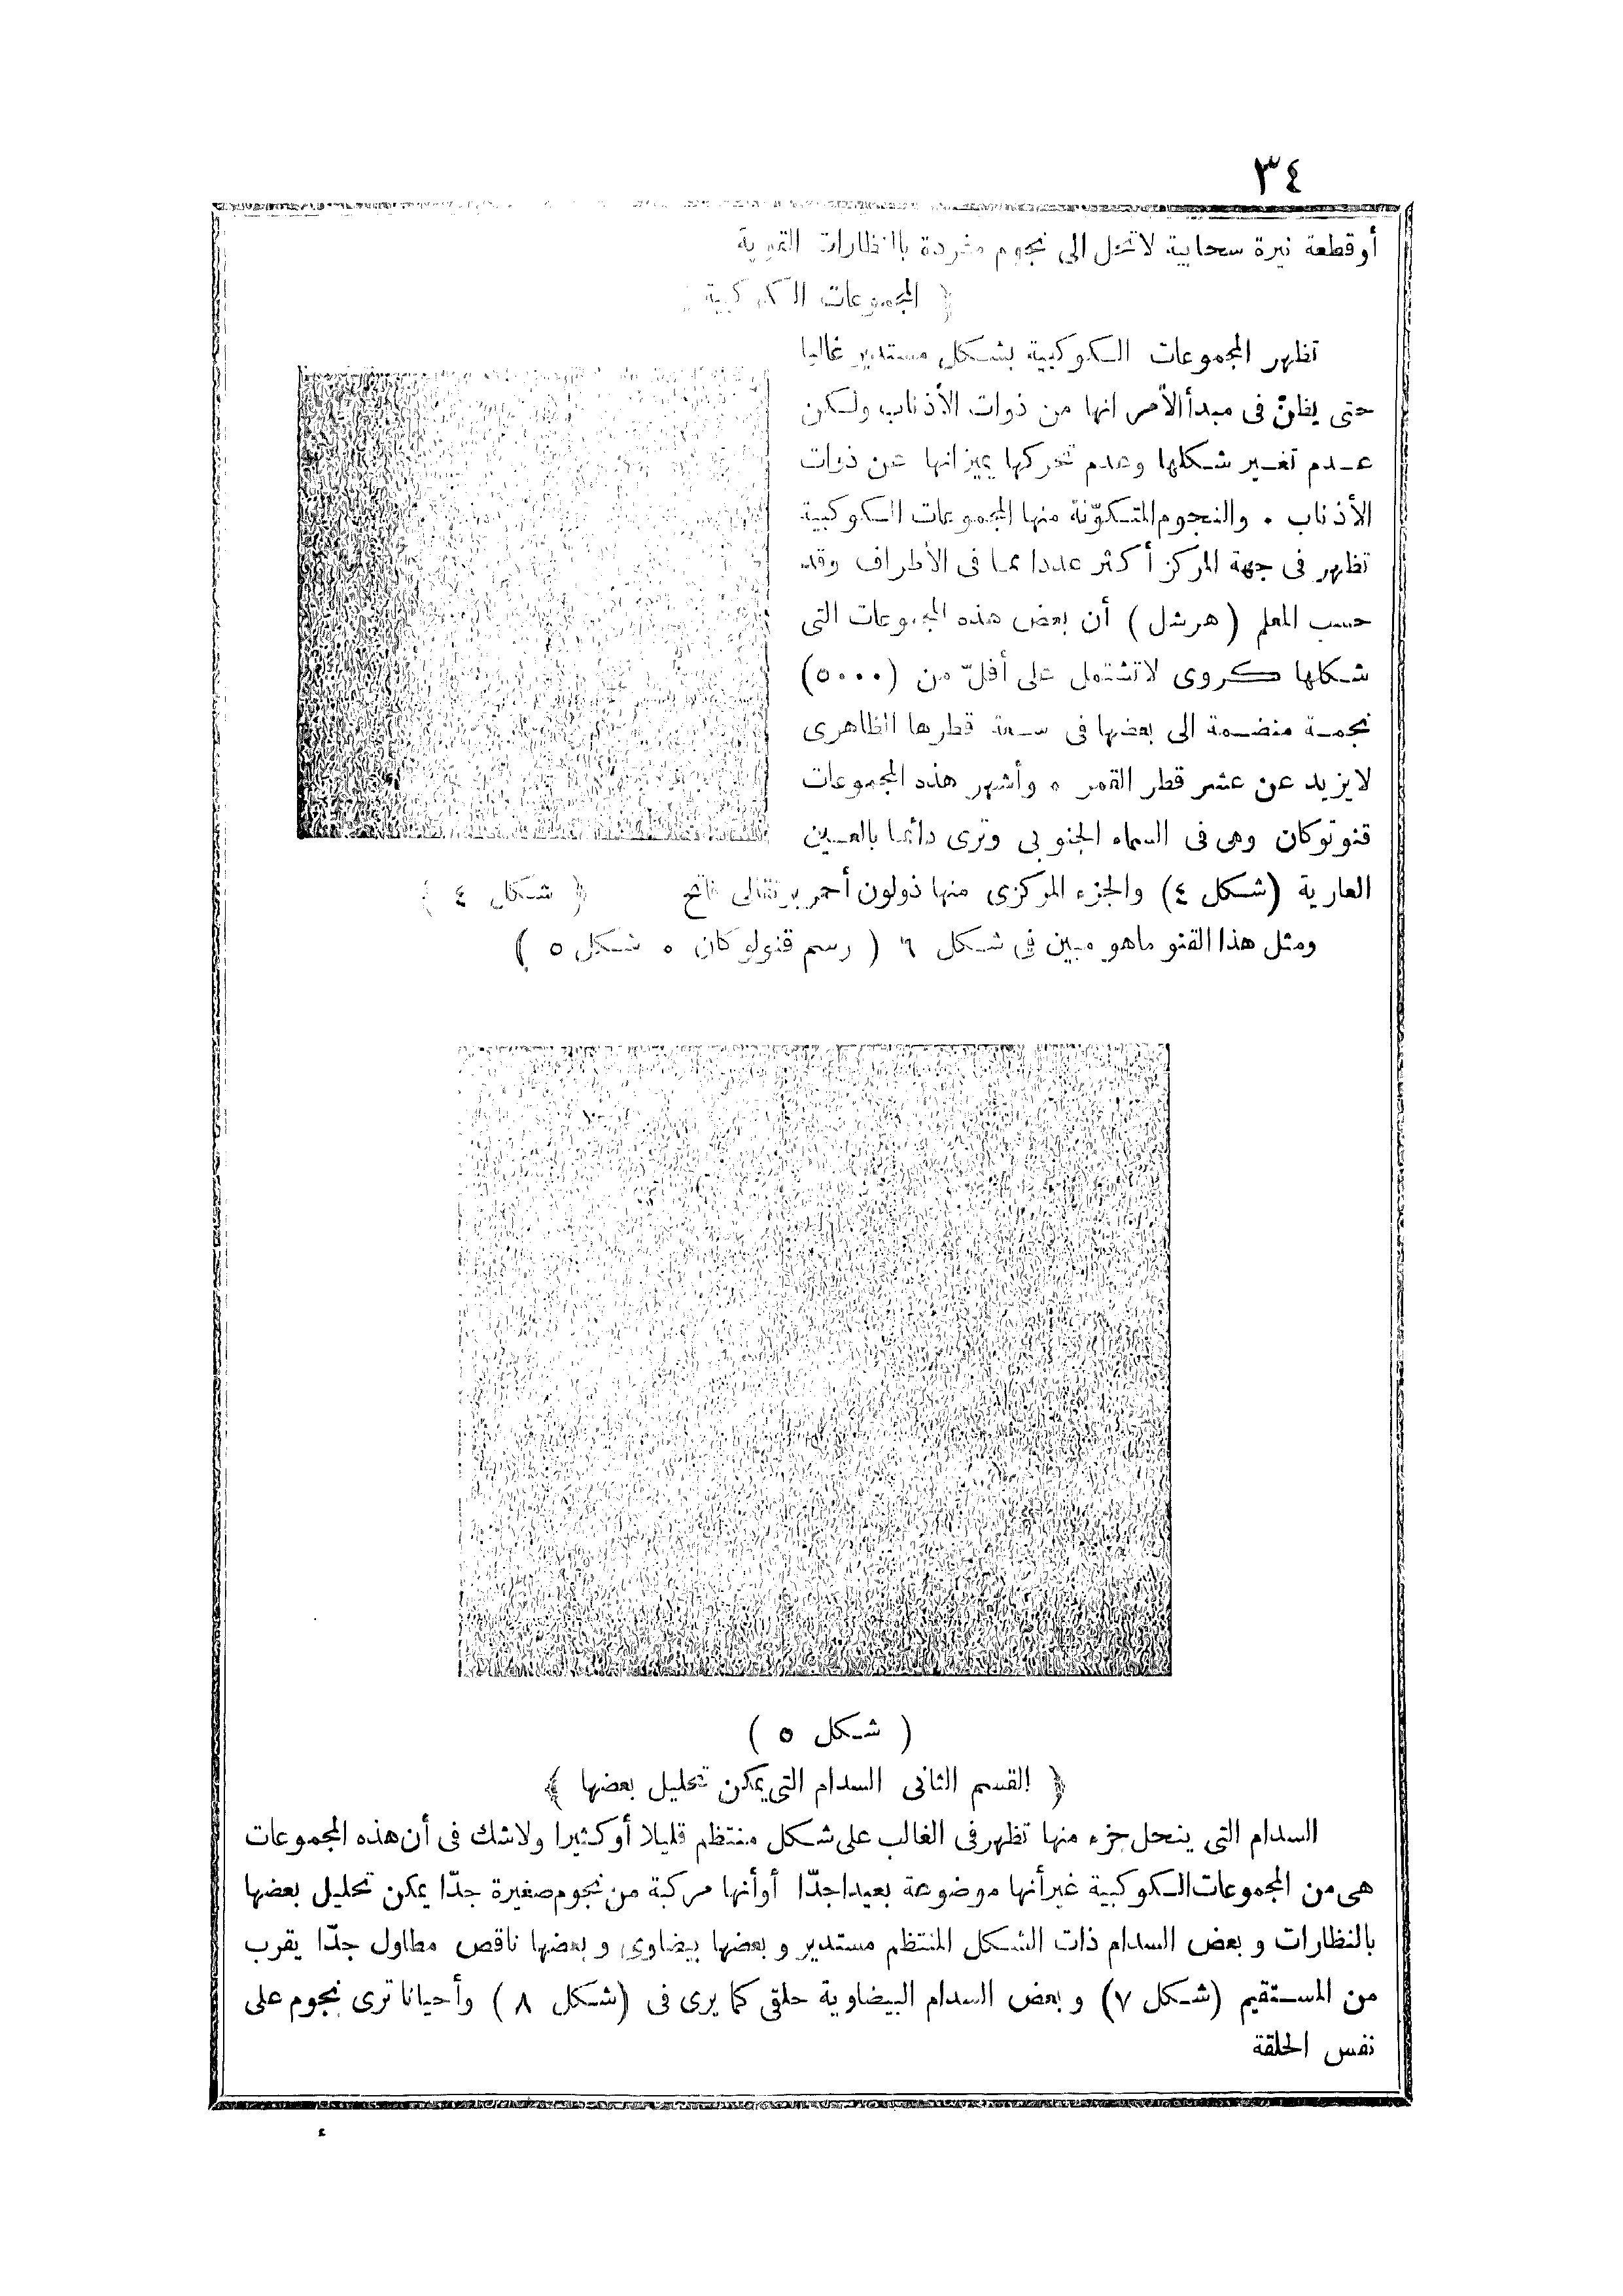 ٣٤
أوقطعة نيرة سحابية لاتنحل الى نجوم مفردة بالنظارات القوية
﴿ المجموعات الكوكبية ﴾
تظهر المجموعات الكوكبية بشكل مستدير غالبا
حتى يظنّ فى مبدأ الأمر انها من ذوات الأذناب ولكن
عدم تغير شكلها وعدم تحركها يميزانها عن ذوات
الأذناب . والنجوم المتكوّنة منها المجموعات الكوكبية
تظهر فى جهة المركز أكثر عددا مما فى الأطراف وقد
حسب المعلم (هرشل) أن بعض هذه المجموعات التى
شكلها كروى لاتشتمل على أقلّ من (٥٠٠٠)
نجمة منضمة الى بعضها فى سعة قطرها الظاهرى
لايزيد عن عشر قطر القمر . وأشهر هذه المجموعات
قنوتوكان وهى فى السماء الجنوبى وترى دائما بالعين
العارية (شكل ٤) والجزء المركزى منها ذولون أحمر برتقالى فاتح
﴿ شكل ٤ ﴾
ومثل هذا القنو ماهو مبين فى شكل ٦ ( رسم قنولوكان . شكل ٥ )
( شكل ٥ )
﴿ القسم الثانى السدام التى يمكن تحليل بعضها ﴾
السدام التى ينحل جزء منها تظهر فى الغالب على شكل منتظم قليلا أوكثيرا ولاشك فى أن هذه المجموعات
هى من المجموعات الكوكبية غيرأنها موضوعة بعيدا جدّا أوأنها مركبة من نجوم صغيرة جدّا يمكن تحليل بعضها
بالنظارات وبعض السدام ذات الشكل المنتظم مستدير وبعضها بيضاوى وبعضها ناقص مطاول جدّا يقرب
من المستقيم (شكل ٧) وبعض السدام البيضاوية حلقى كما يرى فى (شكل ٨) وأحيانا ترى نجوم على
نفس الحلقة